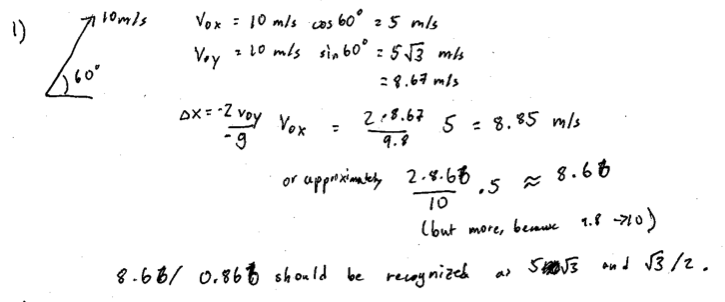 1) 10 m/s 60°
V₀ₓ = 10 m/s cos 60° = 5 m/s
V₀ᵧ = 10 m/s sin 60° = 5√3 m/s
= 8.67 m/s
Δx = -2 V₀ᵧ / -g V₀ₓ = 2·8.67 / 9.8 5 = 8.85 m/s
or approximately 2·8.66 / 10 · 5 ≈ 8.66
(but more, because 9.8 → 10)
8.66 / 0.866 should be recognized as 5√3 and √3/2.